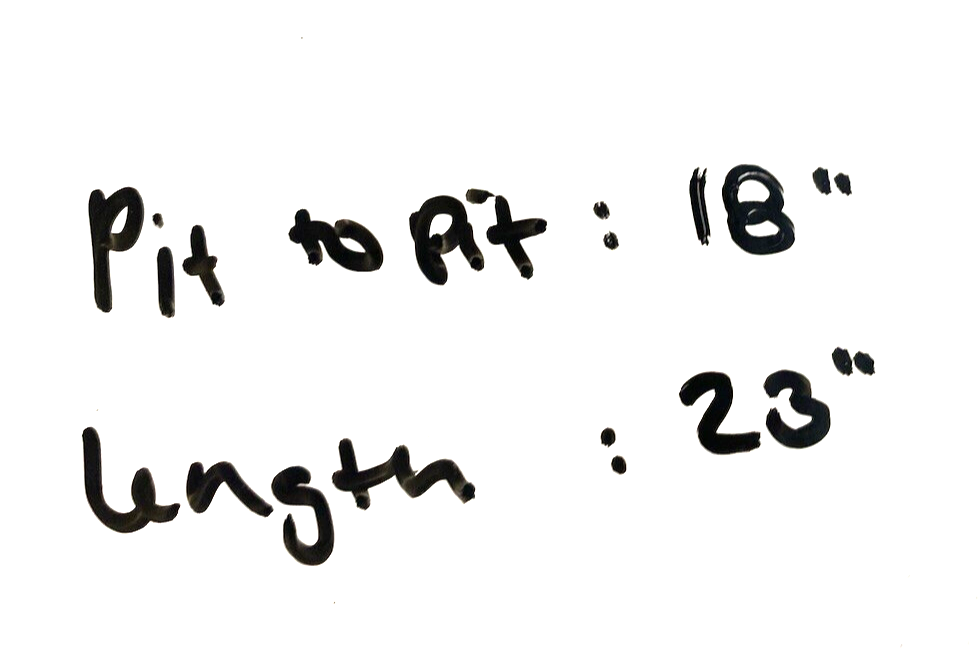 Pit to Pit : 18"
length : 23"